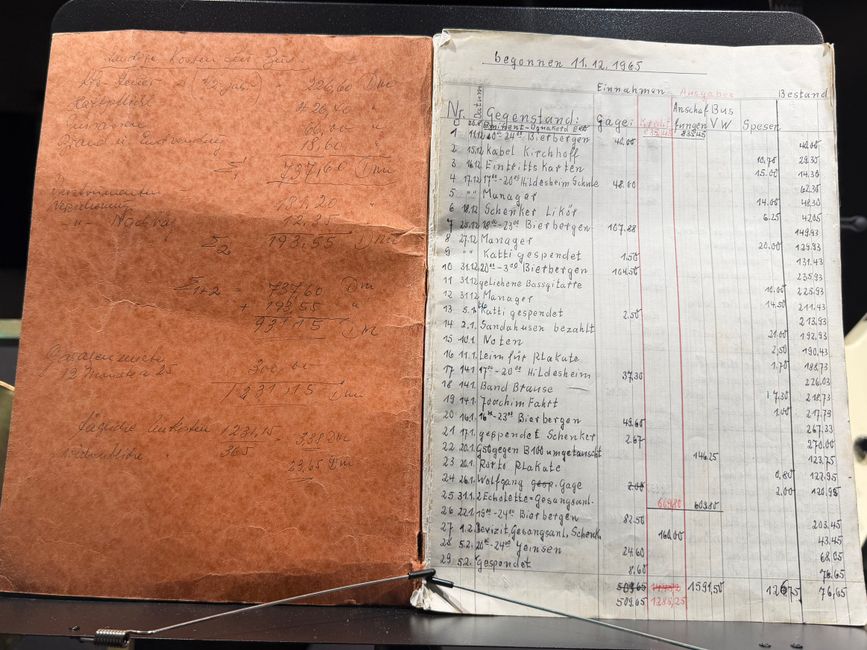 Laufende Kosten des Bus
Kfz Steuer (1/2 Jahr) 226,60 Dm
Haftpflicht 426,40 "
66,00 "
18,60
Σ1 737,60 Dm
181,20 "
Versicherung 12,35
" Nachtrag
Σ2 193,55 Dm
Σ1+2 = 737,60 Dm
+ 193,55 "
931,15 Dm
Garagenmiete
12 Monate a 25 300,00
1231,15 Dm
tägliche Unkosten 1231,15
365 = 3,38 Dm
wöchentliche 23,65 Dm
begonnen 11.12.1965
Einnahmen Ausgaben Bestand
Nr. Datum Gegenstand: Gage: Kredit Anschaffungen Bus VW Spesen
0 835,45 835,45
1 11.12. 20⁰⁰-24⁰⁰ Bierbergen 40.00 40.00
2 15.12. Kabel Kirchhoff 10,70 29.30
3 16.12. Eintritts Karten 15.00 14.30
4 17.12. 17⁰⁰-20⁰⁰ Hildesheim Schule 48.00 62.30
5 " " Manager 14.00 48.30
6 18.12. Schenker Likör 6.25 42.05
7 25.12. 18⁰⁰-23⁰⁰ Bierbergen 107.88 149.93
8 27.12. Manager 20.00 129.93
9 " Katti gespendet 1.50 131.43
10 31.12. 20⁰⁰-3⁰⁰ Bierbergen 104.50 235.93
11 31.12. geliehene Bassgitarre 10.00 225.93
12 31.12. Manager 14.50 211.43
13 5.1. Katti gespendet 2.50 213.93
14 2.1. Sandahusen bezahlt 21.00 192.93
15 10.1. Noten 2,50 190,43
16 11.1. Leim für Plakate 1.70 188.73
17 14.1. 17⁰⁰-20⁰⁰ Hildesheim 37.30 226.03
18 14.1. Band Brause
19 14.1. Joachim Fahrt 7.30 218.73
20 16.1. 16⁰⁰-23⁰⁰ Bierbergen 49.60 1.00 217.73
21 17.1. gespendet Schenker 2.67 267.33
22 20.1. G50 gegen B100 umgetauscht 146.25 270.00
23 20.1. Rörto Plakate 123.75
24 26.1. Wolfgang Gage 2.00 0,80 122.95
25 31.1. 2 Echolette-Gesangsanl. 609.80 609.80 2,00 120,95
26 22.1. 19⁰⁰-24⁰⁰ Bierbergen 82.50 203.45
27 1.2. Revizit, Gesangsanl, Schenk. 160,00 43.45
28 5.2. 20⁰⁰-24⁰⁰ Jeinsen 24.60 68.05
29 5.2. gespendet 8.60 76.65
509.65 1591,50 126,75 76,65
509.65 1285,25